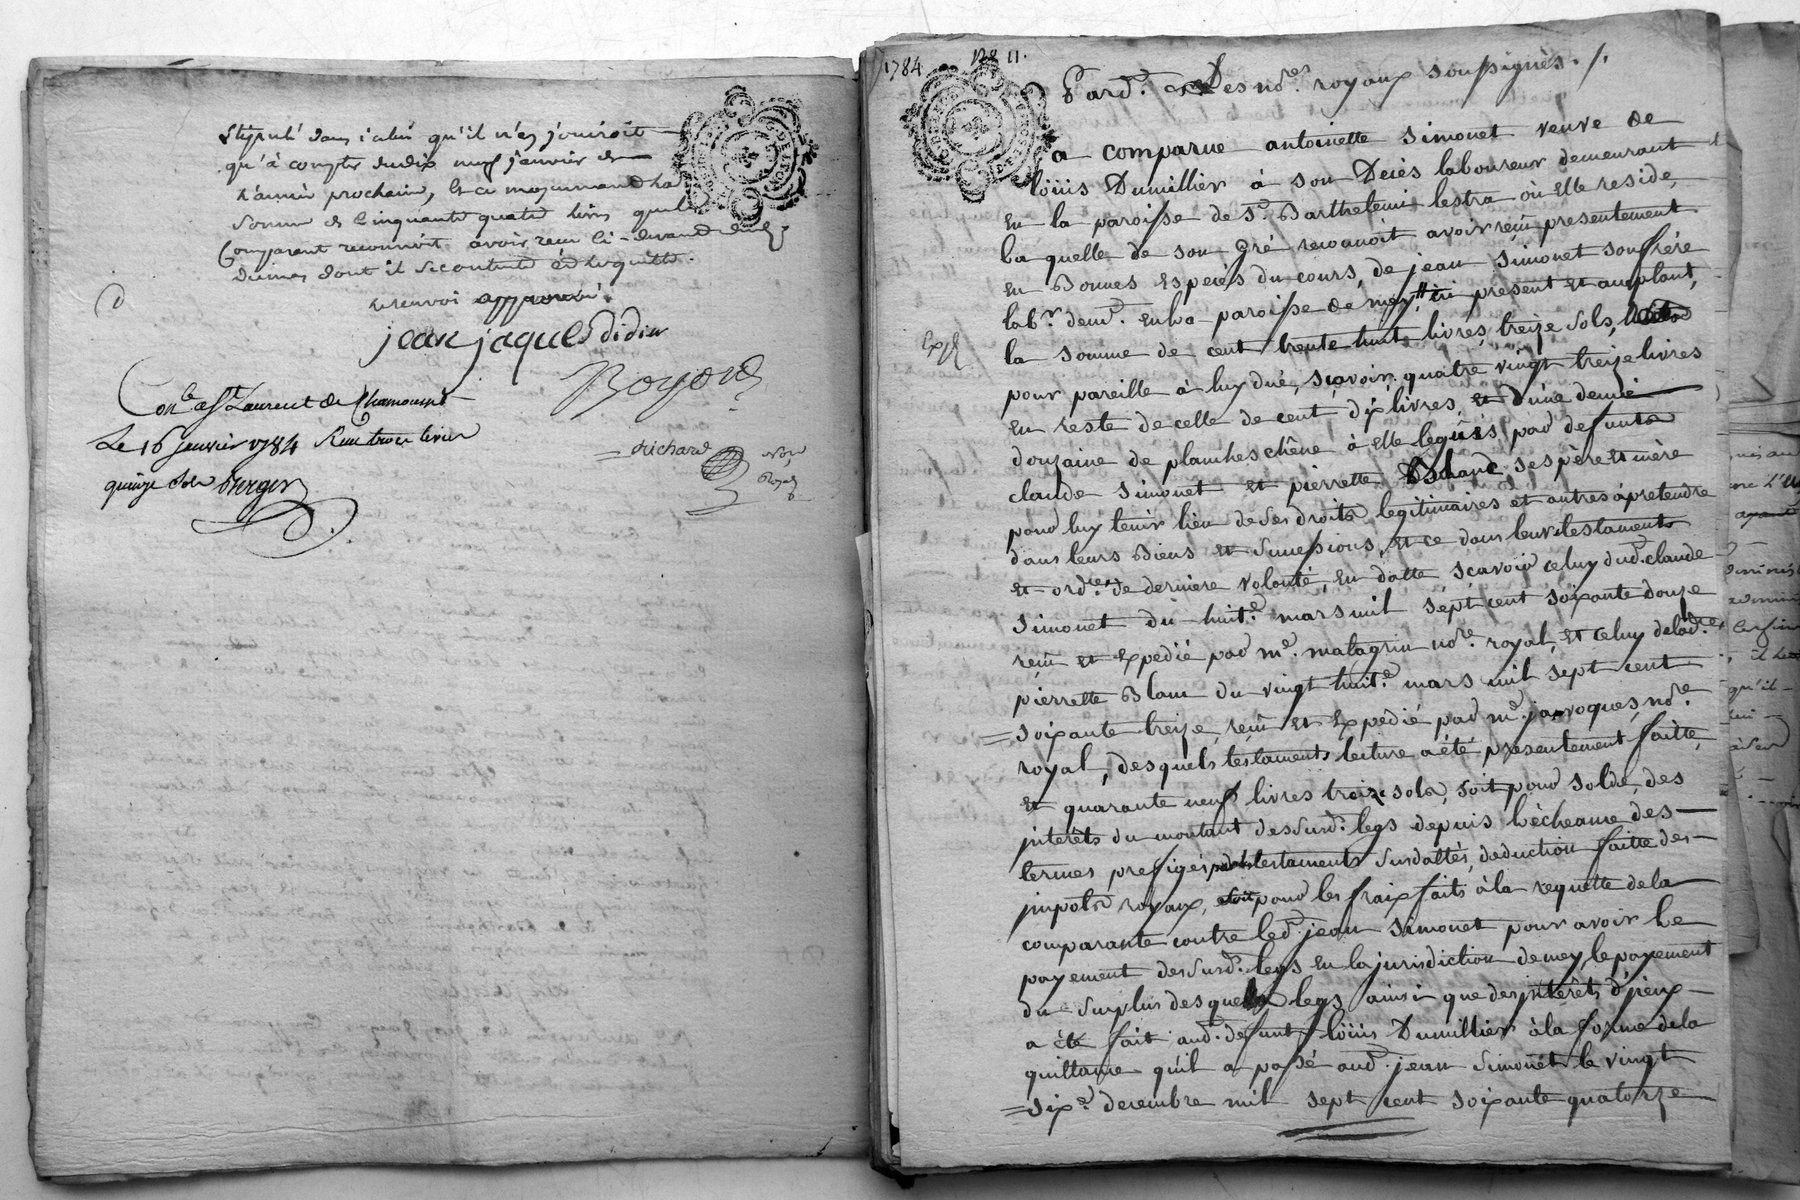 stipulé dans icelui qu'il n'en jouiroit
qu'à compter dudix neuf janvier de
l'année prochaine, et ce moyennant la
somme de Cinquante quatre livres que le
Comparant reconnoit avoir reçu ci-devant dud.
dont il se contente et le quitte.
le renvoi approuvé.
jean jaques didier
Boyond
Con.lé a St Laurent de Chamousset
Le 16 janvier 1784 Reçu trois livres
quinze sols Berger
Richard
no.re
Royal
1784
Pard.t Les no.res royaux soussignés ./.
a comparue antoinette Simonet veuve de
loüis Dumillier à son Decès laboureur demeurant
en la paroisse de St. Barthelemi lestra où Elle reside,
la quelle de son gré reconnoit avoir reçu presentement
en Bonnes Especes du cours, de jean Simonet son frère
lab.r dem.t en la paroisse de mey, ici present et acceptant,
la somme de cent trente huit livres, treize sols,
Exp.é
pour pareille à luy duë, sçavoir quatre vingt treize livres
en reste de celle de cent dix livres, et d'une demie
douzaine de planches chêne à Elle legués par defunts
claude Simonet et pierrette Blanc ses père et mère
pour luy tenir lieu de ses droits legitimaires et autres à pretendre
dans leurs Biens et Successions, et ce dans leurs testaments
et ord.ces de derniere volonté, en datte sçavoir celuy dud. claude
Simonet du huit.e mars mil sept cent soixante douze
reçu et Expedié par m.e matagrin no.re royal, et celuy de lad.te
pierrette Blanc du vingt huit.e mars mil sept cent
soixante treize, reçu et Expédié par m.e jarroques, no.re
royal, desquels testaments lecture a été presentement faitte,
et quarante neuf livres treize sols, soit pour solde des
jnterêts du montant desSusd. legs depuis l'écheance des
termes prefigés par les testaments Susdattés, deduction faitte des
jmpots royaux, soit pour les fraix faits à la requette de la
comparante contre led. jean Simonet pour avoir le
payement desSusd. legs en la jurisdiction de mey, le payement
du Surplus desquels legs ainsi que des jnterêts d'jceux
a été fait aud. defunt loüis Dumillier à la forme de la
quittance qu'il a passé aud. jean Simonet le vingt
six.e decembre mil sept cent soixante quatorze